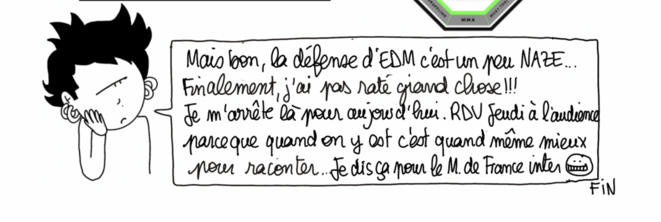 MMA
Mais bon, la défense d'EDM c'est un peu NAZE...
Finalement, j'ai pas raté grand chose!!!
Je m'arrête là pour aujourd'hui. RDV Jeudi à l'audience
parce que quand on y est c'est quand même mieux
pour raconter.. Je dis ça pour le M. de France inter
FIN